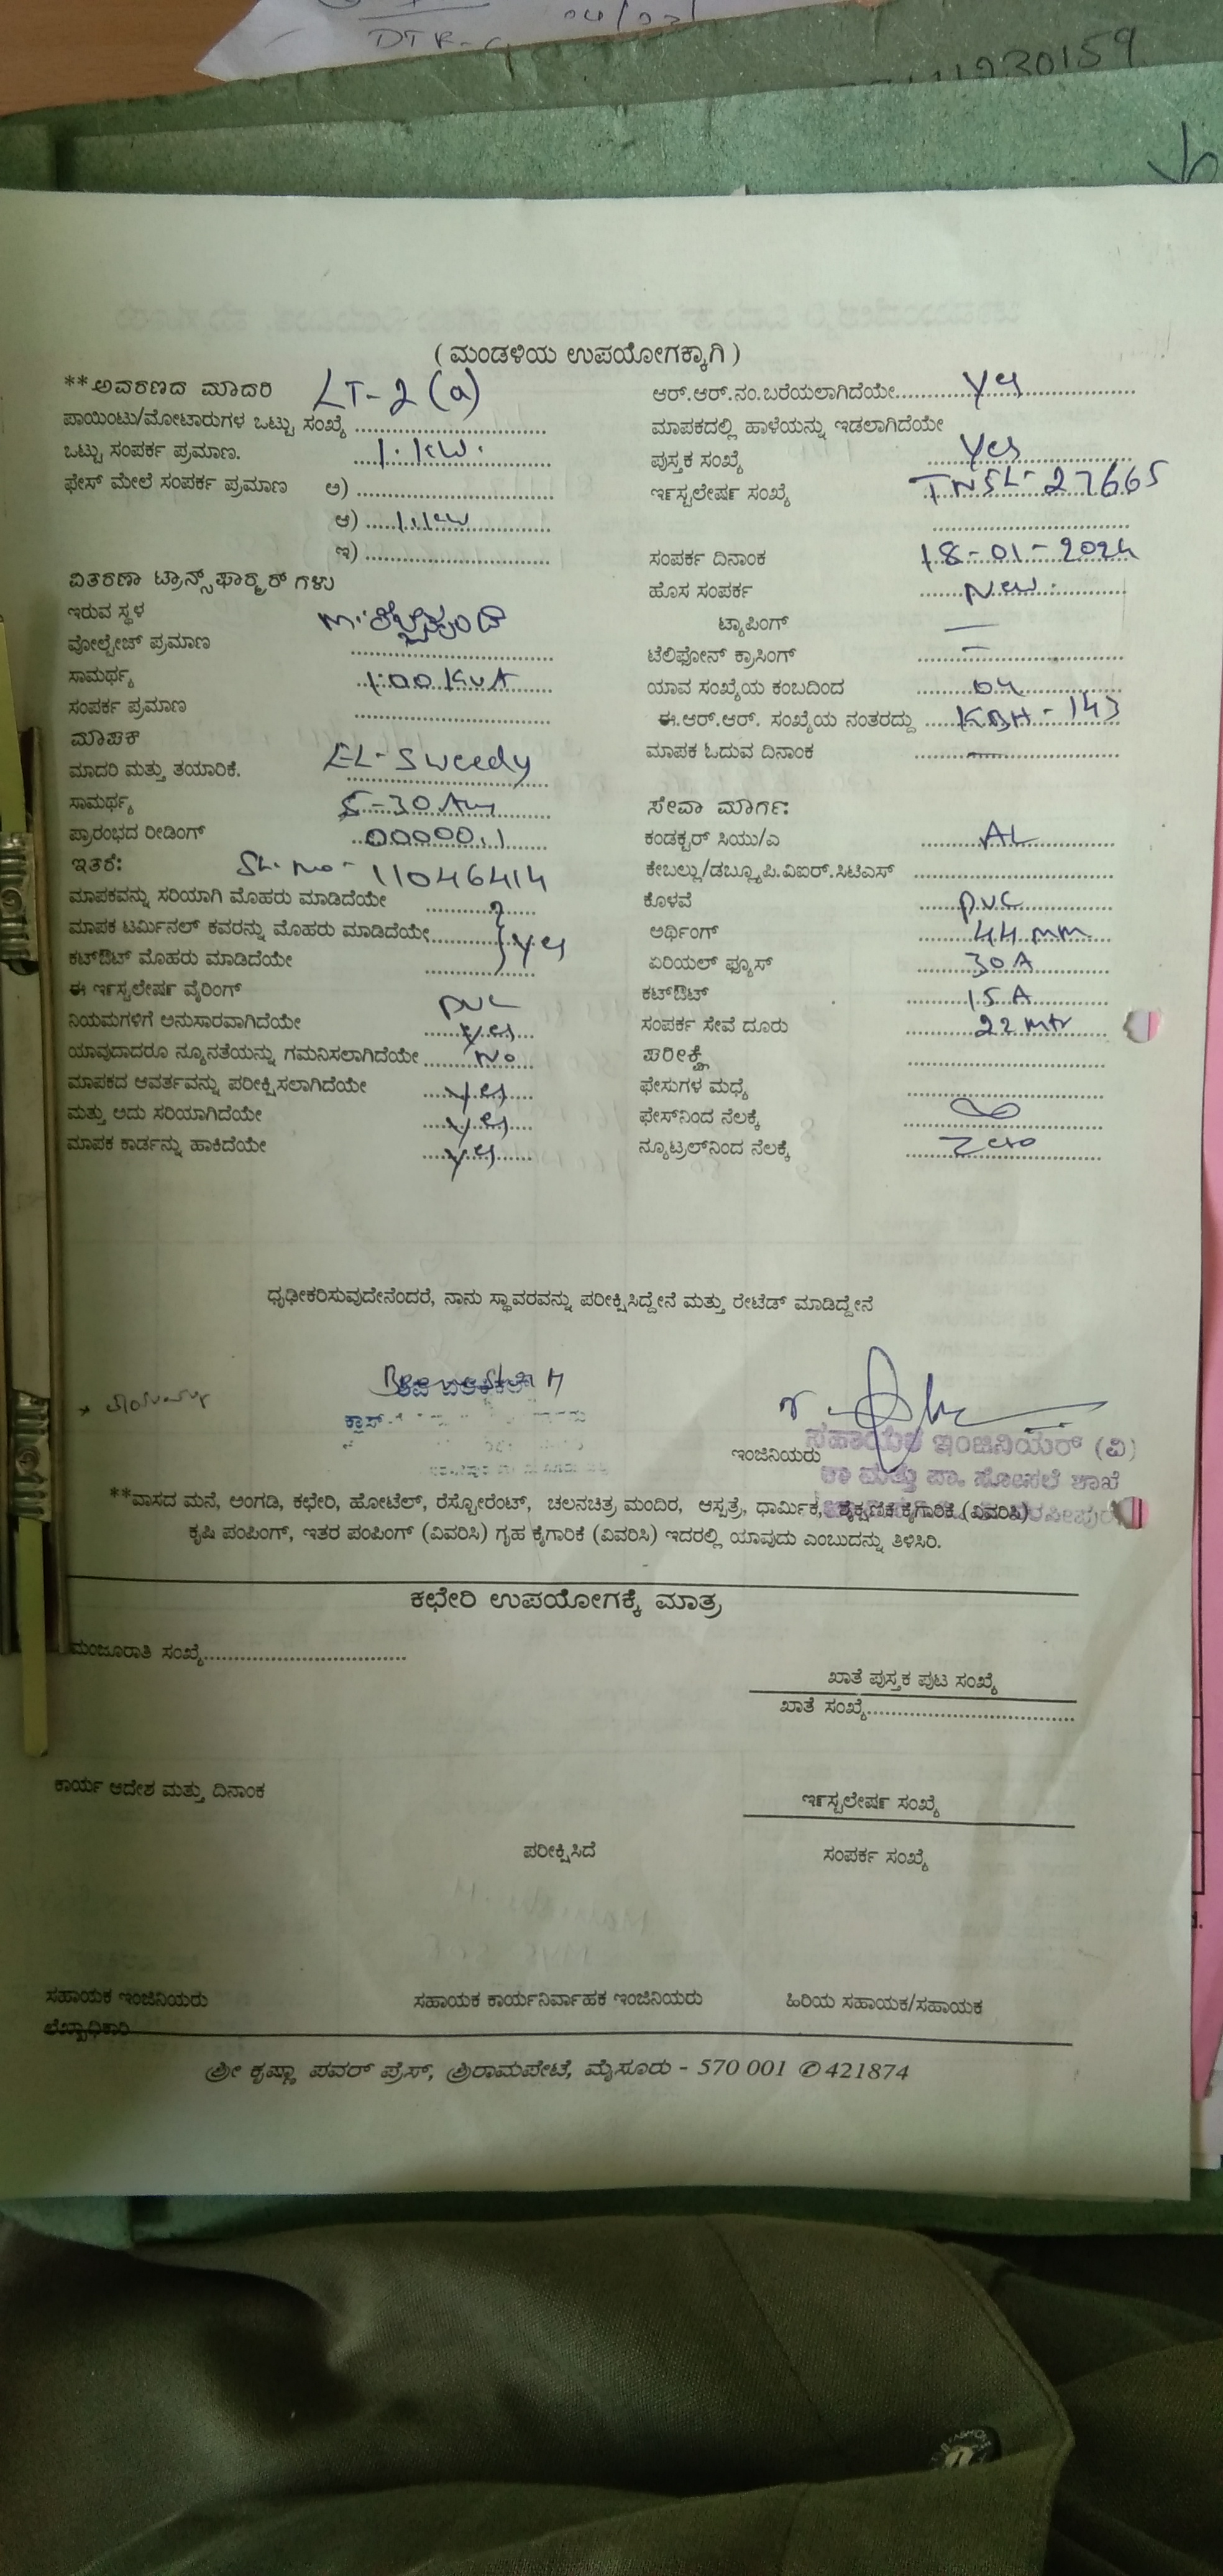 04/23/
DTR-G
11930159
( ಮಂಡಳಿಯ ಉಪಯೋಗಕ್ಕಾಗಿ )
**ಆವರಣದ ಮಾದರಿ LT-2(a)
ಪಾಯಿಂಟು/ಮೋಟಾರುಗಳ ಒಟ್ಟು ಸಂಖ್ಯೆ ..............................
ಒಟ್ಟು ಸಂಪರ್ಕ ಪ್ರಮಾಣ. 1.KW.
ಫೇಸ್ ಮೇಲೆ ಸಂಪರ್ಕ ಪ್ರಮಾಣ ಅ) ..............................
ಆ) 1.KW
ಇ) ..............................
ವಿತರಣಾ ಟ್ರಾನ್ಸ್‌ಫಾರ್ಮರ್‌ಗಳು
ಇರುವ ಸ್ಥಳ
ವೋಲ್ಟೇಜ್ ಪ್ರಮಾಣ ..............................
ಸಾಮರ್ಥ್ಯ 100 KVA
ಸಂಪರ್ಕ ಪ್ರಮಾಣ ..............................
ಮಾಪಕ
ಮಾದರಿ ಮತ್ತು ತಯಾರಿಕೆ. EL-Sweedy
ಸಾಮರ್ಥ್ಯ 5-30 Am
ಪ್ರಾರಂಭದ ರೀಡಿಂಗ್ 00000.1
ಇತರೆ: SL.No- 11046414
ಮಾಪಕವನ್ನು ಸರಿಯಾಗಿ ಮೊಹರು ಮಾಡಿದೆಯೇ
ಮಾಪಕ ಟರ್ಮಿನಲ್ ಕವರನ್ನು ಮೊಹರು ಮಾಡಿದೆಯೇ } yes
ಕಟ್‌ಔಟ್ ಮೊಹರು ಮಾಡಿದೆಯೇ
ಈ ಇನ್ಸ್ಟಲೇಷನ್ ವೈರಿಂಗ್ PVC
ನಿಯಮಗಳಿಗೆ ಅನುಸಾರವಾಗಿದೆಯೇ yes
ಯಾವುದಾದರೂ ನ್ಯೂನತೆಯನ್ನು ಗಮನಿಸಲಾಗಿದೆಯೇ No
ಮಾಪಕದ ಆವರ್ತವನ್ನು ಪರೀಕ್ಷಿಸಲಾಗಿದೆಯೇ yes
ಮತ್ತು ಅದು ಸರಿಯಾಗಿದೆಯೇ yes
ಮಾಪಕ ಕಾರ್ಡನ್ನು ಹಾಕಿದೆಯೇ yes
ಆರ್.ಆರ್.ನಂ.ಬರೆಯಲಾಗಿದೆಯೇ yes
ಮಾಪಕದಲ್ಲಿ ಹಾಳೆಯನ್ನು ಇಡಲಾಗಿದೆಯೇ
ಪುಸ್ತಕ ಸಂಖ್ಯೆ yes
ಇನ್ಸ್ಟಲೇಷನ್ ಸಂಖ್ಯೆ TNSL-27665
ಸಂಪರ್ಕ ದಿನಾಂಕ 18-01-2024
ಹೊಸ ಸಂಪರ್ಕ New.
ಟ್ಯಾಪಿಂಗ್ —
ಟೆಲಿಫೋನ್ ಕ್ರಾಸಿಂಗ್ —
ಯಾವ ಸಂಖ್ಯೆಯ ಕಂಬದಿಂದ 04
ಈ.ಆರ್.ಆರ್. ಸಂಖ್ಯೆಯ ನಂತರದ್ದು KBH-143
ಮಾಪಕ ಓದುವ ದಿನಾಂಕ —
ಸೇವಾ ಮಾರ್ಗ:
ಕಂಡಕ್ಟರ್ ಸಿಯು/ಎ AL
ಕೇಬಲ್ಲು/ಡಬ್ಲ್ಯೂಪಿ.ವಿಐಆರ್.ಸಿಟಿಎಸ್ ..............................
ಕೊಳವೆ PVC
ಅರ್ಥಿಂಗ್ 44 mm
ಏರಿಯಲ್ ಫ್ಯೂಸ್ 30 A
ಕಟ್‌ಔಟ್ 15 A
ಸಂಪರ್ಕ ಸೇವೆ ದೂರು 22 mtr
ಪರೀಕ್ಷೆ
ಫೇಸುಗಳ ಮಧ್ಯೆ ..............................
ಫೇಸ್‌ನಿಂದ ನೆಲಕ್ಕೆ ∞
ನ್ಯೂಟ್ರಲ್‌ನಿಂದ ನೆಲಕ್ಕೆ Zero
ಧೃಢೀಕರಿಸುವುದೇನೆಂದರೆ, ನಾನು ಸ್ಥಾವರವನ್ನು ಪರೀಕ್ಷಿಸಿದ್ದೇನೆ ಮತ್ತು ರೇಟೆಡ್ ಮಾಡಿದ್ದೇನೆ
ಕ್ಲಾಸ್
ಇಂಜಿನಿಯರು
ಸಹಾಯಕ ಇಂಜಿನಿಯರ್ (ವಿ)
ಕಾ ಮತ್ತು ಪಾ. ಸೋಸಲೆ ಶಾಖೆ
**ವಾಸದ ಮನೆ, ಅಂಗಡಿ, ಕಛೇರಿ, ಹೋಟೆಲ್, ರೆಸ್ಟೋರೆಂಟ್, ಚಲನಚಿತ್ರ ಮಂದಿರ, ಆಸ್ಪತ್ರೆ, ಧಾರ್ಮಿಕ, ಶೈಕ್ಷಣಿಕ ಕೈಗಾರಿಕೆ (ವಿವರಿಸಿ)
ಕೃಷಿ ಪಂಪಿಂಗ್, ಇತರ ಪಂಪಿಂಗ್ (ವಿವರಿಸಿ) ಗೃಹ ಕೈಗಾರಿಕೆ (ವಿವರಿಸಿ) ಇದರಲ್ಲಿ ಯಾವುದು ಎಂಬುದನ್ನು ತಿಳಿಸಿರಿ.
ಕಛೇರಿ ಉಪಯೋಗಕ್ಕೆ ಮಾತ್ರ
ಮಂಜೂರಾತಿ ಸಂಖ್ಯೆ..............................
ಖಾತೆ ಪುಸ್ತಕ ಪುಟ ಸಂಖ್ಯೆ
ಖಾತೆ ಸಂಖ್ಯೆ..............................
ಕಾರ್ಯ ಆದೇಶ ಮತ್ತು ದಿನಾಂಕ
ಇನ್ಸ್ಟಲೇಷನ್ ಸಂಖ್ಯೆ
ಪರೀಕ್ಷಿಸಿದೆ
ಸಂಪರ್ಕ ಸಂಖ್ಯೆ
ಸಹಾಯಕ ಇಂಜಿನಿಯರು ಸಹಾಯಕ ಕಾರ್ಯನಿರ್ವಾಹಕ ಇಂಜಿನಿಯರು ಹಿರಿಯ ಸಹಾಯಕ/ಸಹಾಯಕ
ಲೆಖ್ಖಾಧಿಕಾರಿ
ಶ್ರೀ ಕೃಷ್ಣಾ ಪವರ್ ಪ್ರೆಸ್, ಶ್ರೀರಾಮಪೇಟೆ, ಮೈಸೂರು - 570 001 ✆421874